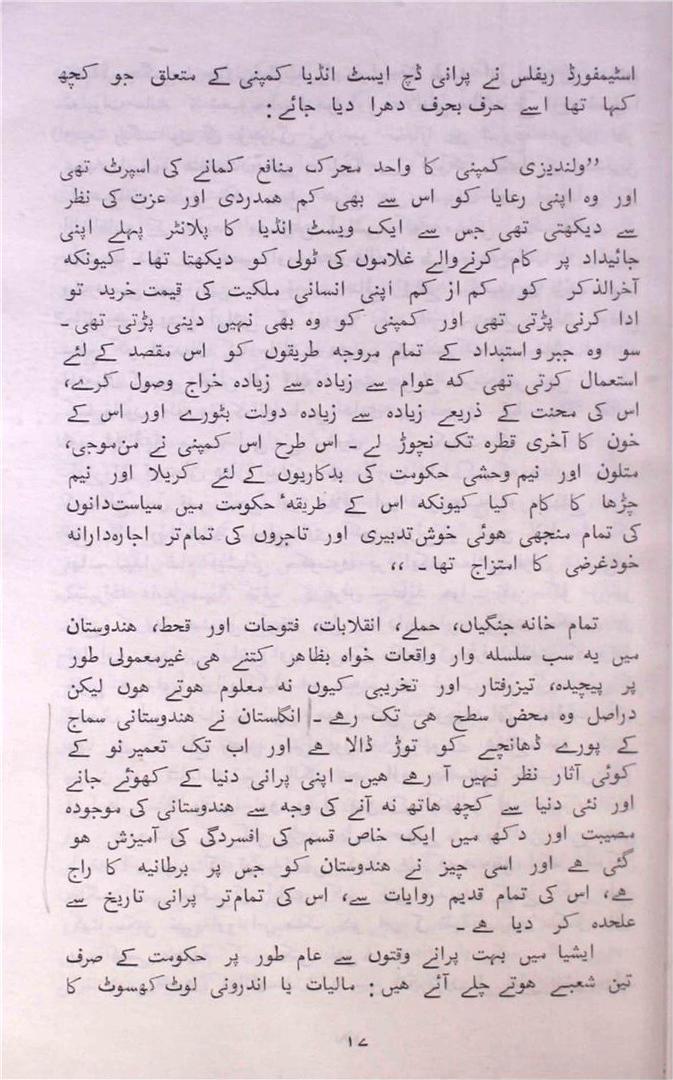 اسٹیمفورڈ ریفلس نے پرانی ڈچ ایسٹ انڈیا کمپنی کے متعلق جو کچھ
کہا تھا اسے حرف بحرف دھرا دیا جائے:
”ولندیزی کمپنی کا واحد محرک منافع کمانے کی اسپرٹ تھی
اور وہ اپنی رعایا کو اس سے بھی کم ھمدردی اور عزت کی نظر
سے دیکھتی تھی جس سے ایک ویسٹ انڈیا کا پلانٹر پہلے اپنی
جائیداد پر کام کرنےوالے غلاموں کی ٹولی کو دیکھتا تھا۔ کیونکہ
آخرالذکر کو کم از کم اپنی انسانی ملکیت کی قیمت خرید تو
ادا کرنی پڑتی تھی اور کمپنی کو وہ بھی نہیں دینی پڑتی تھی۔
سو وہ جبر و استبداد کے تمام مروجہ طریقوں کو اس مقصد کےلئے
استعمال کرتی تھی کہ عوام سے زیادہ سے زیادہ خراج وصول کرے،
اس کی محنت کے ذریعے زیادہ سے زیادہ دولت بٹورے اور اس کے
خون کا آخری قطرہ تک نچوڑ لے۔ اس طرح اس کمپنی نے من‌موجی،
متلون اور نیم وحشی حکومت کی بدکاریوں کے لئے کریلا اور نیم
چڑھا کا کام کیا کیونکہ اس کے طریقہٴ حکومت میں سیاست‌دانوں
کی تمام منجھی ھوئی خوش‌تدبیری اور تاجروں کی تمام‌تر اجارہ‌دارانہ
خودغرضی کا امتزاج تھا۔،،
تمام خانہ جنگیاں، حملے، انقلابات، فتوحات اور قحط، ھندوستان
میں یہ سب سلسلہ وار واقعات خواہ بظاھر کتنے ھی غیرمعمولی طور
پر پیچیدہ، تیزرفتار اور تخریبی کیوں نہ معلوم ھوتے ھوں لیکن
دراصل وہ محض سطح ھی تک رھے۔ انگلستان نے ھندوستانی سماج
کے پورے ڈھانچے کو توڑ ڈالا ھے اور اب تک تعمیرنو کے
کوئی آثار نظر نہیں آ رھے ھیں۔ اپنی پرانی دنیا کے کھوئے جانے
اور نئی دنیا سے کچھ ھاتھ نہ آنے کی وجہ سے ھندوستانی کی موجودہ
مصیبت اور دکھ میں ایک خاص قسم کی افسردگی کی آمیزش ھو
گئی ھے اور اسی چیز نے ھندوستان کو جس پر برطانیہ کا راج
ھے، اس کی تمام قدیم روایات سے، اس کی تمام‌تر پرانی تاریخ سے
علحدہ کر دیا ھے۔
ایشیا میں بہت پرانے وقتوں سے عام طور پر حکومت کے صرف
تین شعبے ھوتے چلے آئے ھیں: مالیات یا اندرونی لوٹ کھسوٹ کا
۱۷